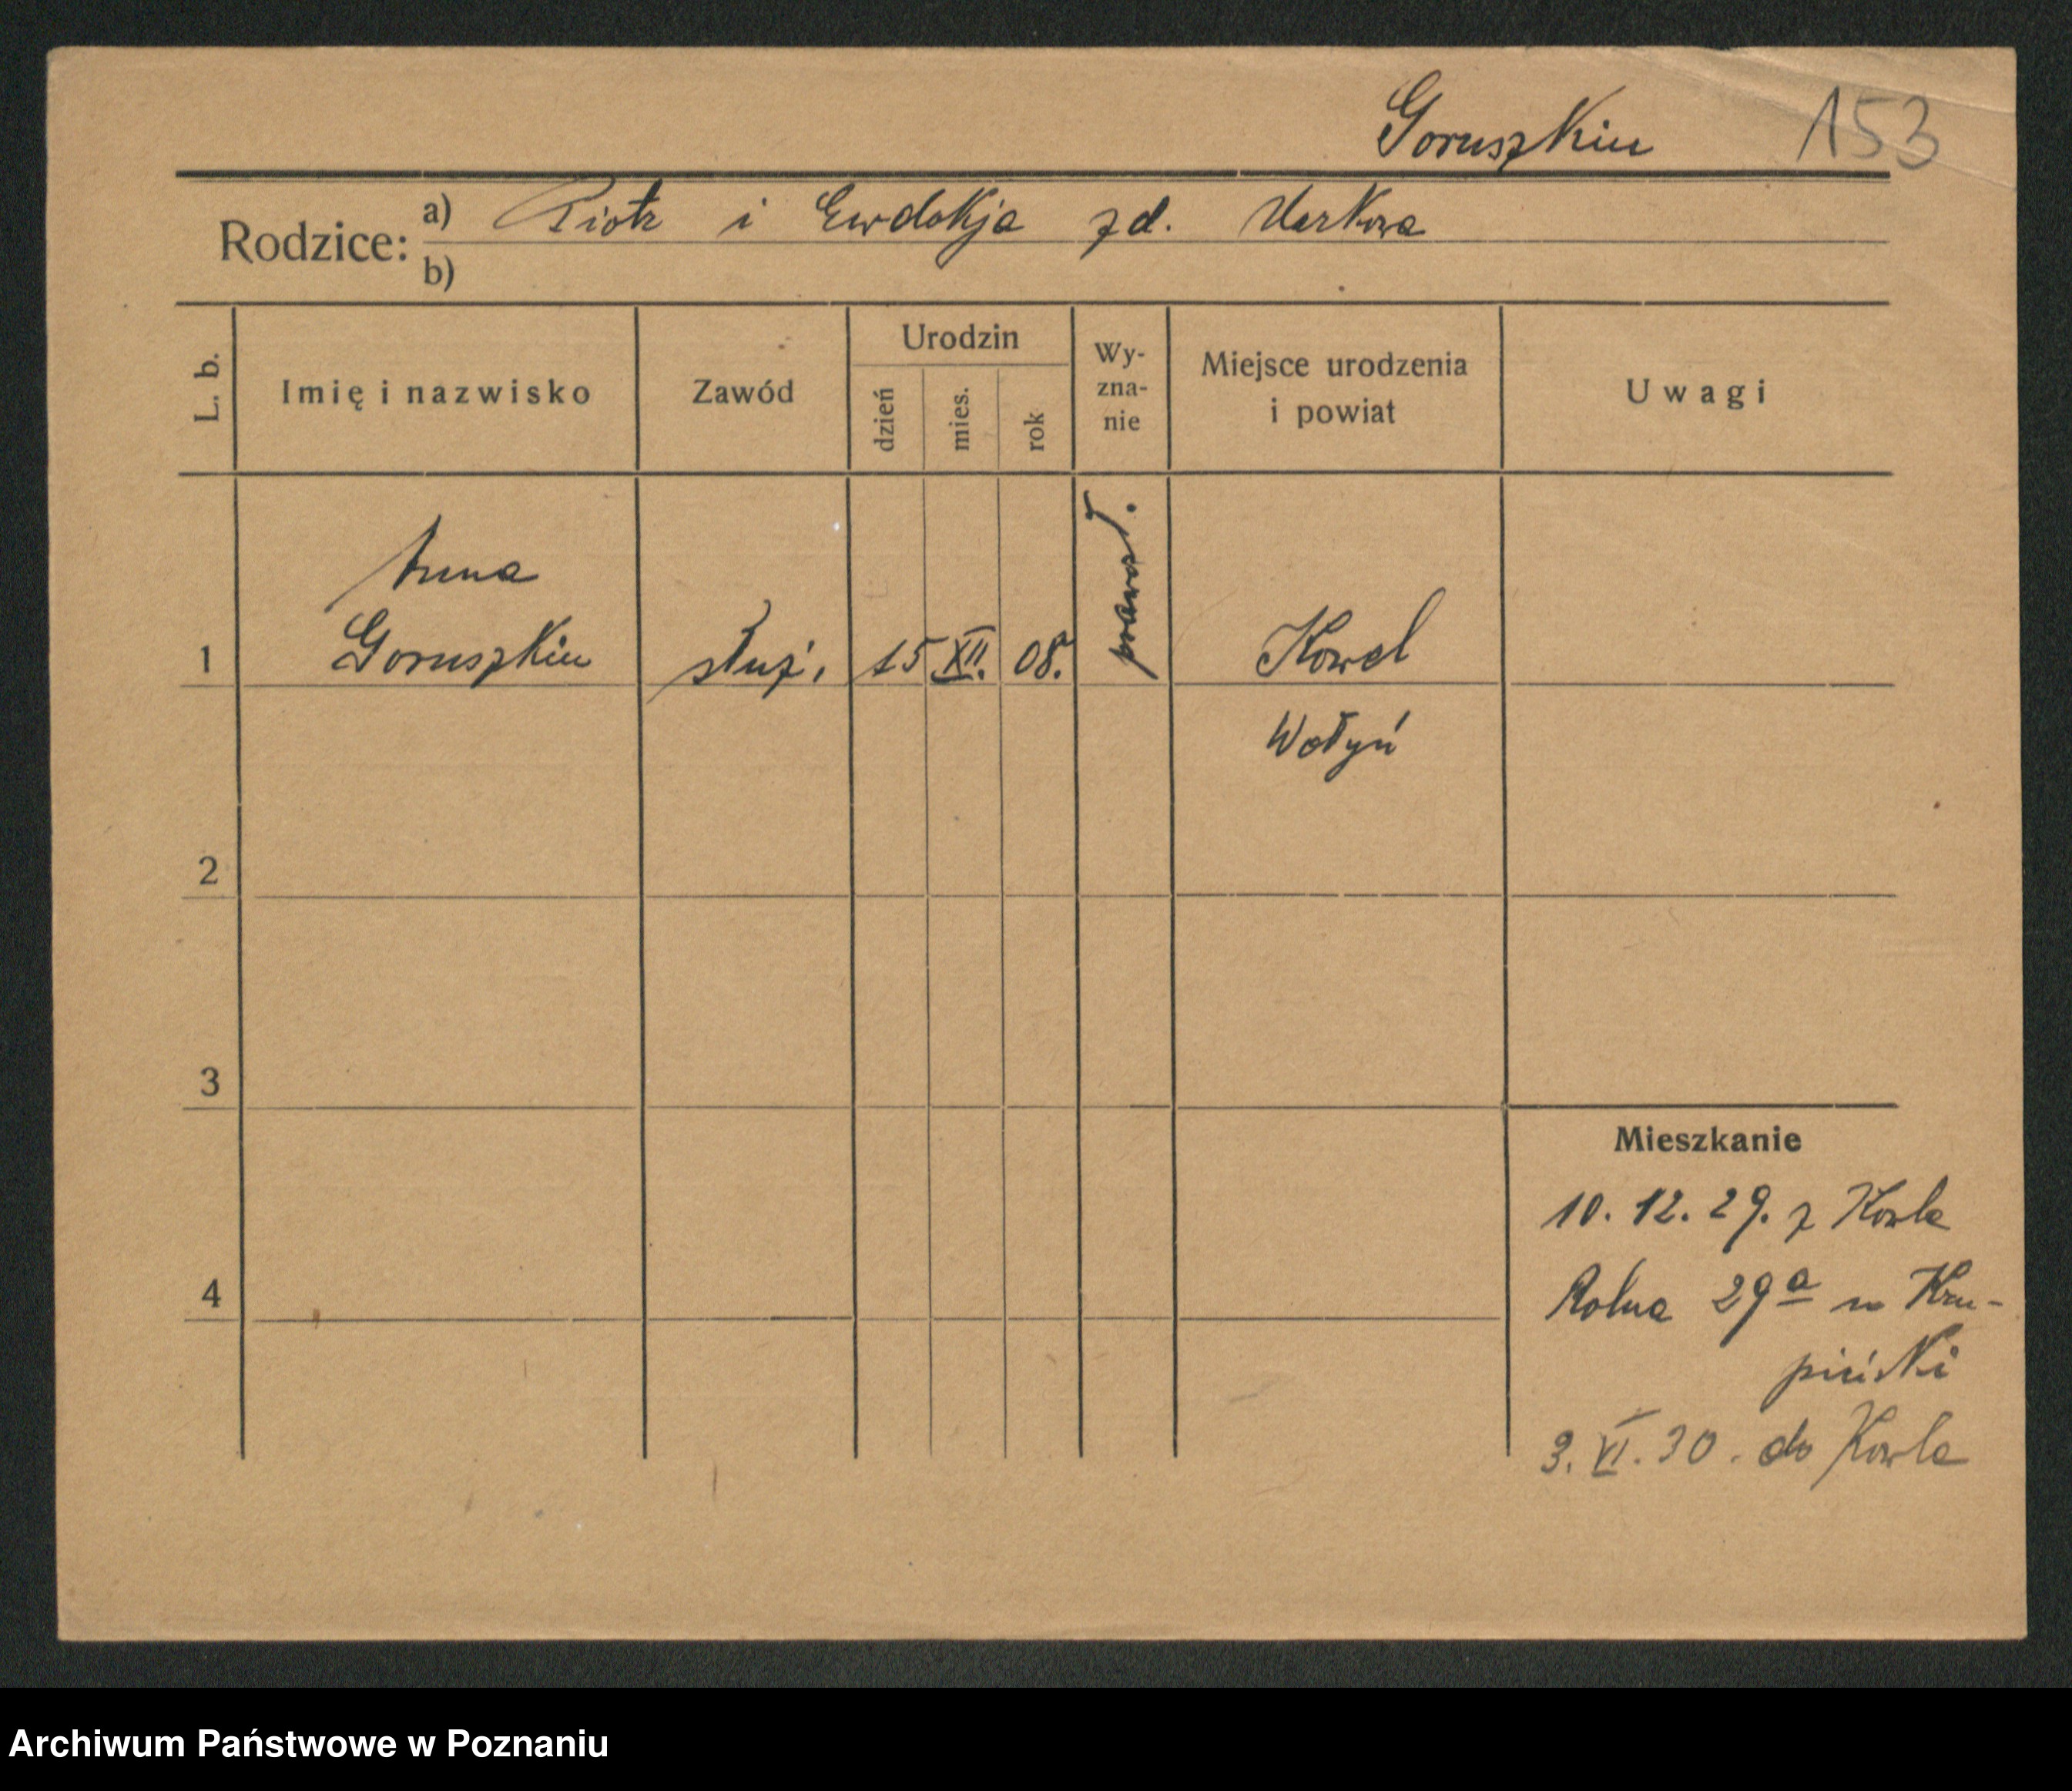 Goruszkin 153
Rodzice: a) Piotr i Ewdokja zd.
b)
L. b. Imię i nazwisko Zawód Urodzin dzień mies. rok Wy-zna-nie Miejsce urodzenia i powiat Uwagi
Anna
1 Goruszkin służ. 15 XII. 08. prawosł. Kowel
Wołyń
2
3
Mieszkanie
10. 12. 29. z Kowla
4 Rolna 29a u Kru-
piński
3. VI. 30. do Kowla
Archiwum Państwowe w Poznaniu